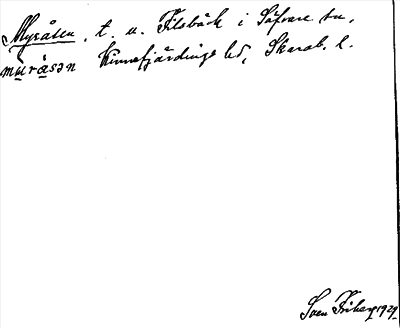 Myråsen. t. u. Filsbäck i Säfvare sn,
muråsən Kinnefjärdings hd, Skarab. l.
Sven Friberg 1929